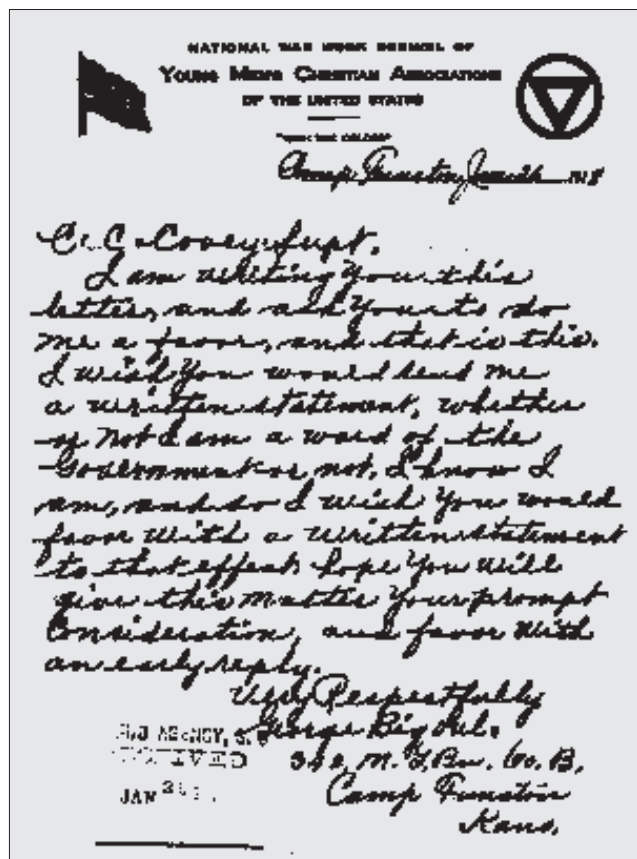 NATIONAL WAR WORK COUNCIL OF
YOUNG MEN'S CHRISTIAN ASSOCIATIONS
OF THE UNITED STATES
"WITH THE COLORS"
Camp Funston, Jan 1918
C. C. Covey, Supt.
I am writing you this
letter, and ask you to do
me a favor, and that is this.
I wish you would send me
a written statement, whether
or not I am a ward of the
Government or not, I know I
am, and so I wish you would
favor with a written statement
to that effect hope you will
give this matter your prompt
Consideration, and favor with
an early reply.
Very Respectfully
George Big Owl.
M. G. Bn. Co. B,
Camp Funston
Kans.
AGENCY, S.
RECEIVED
JAN